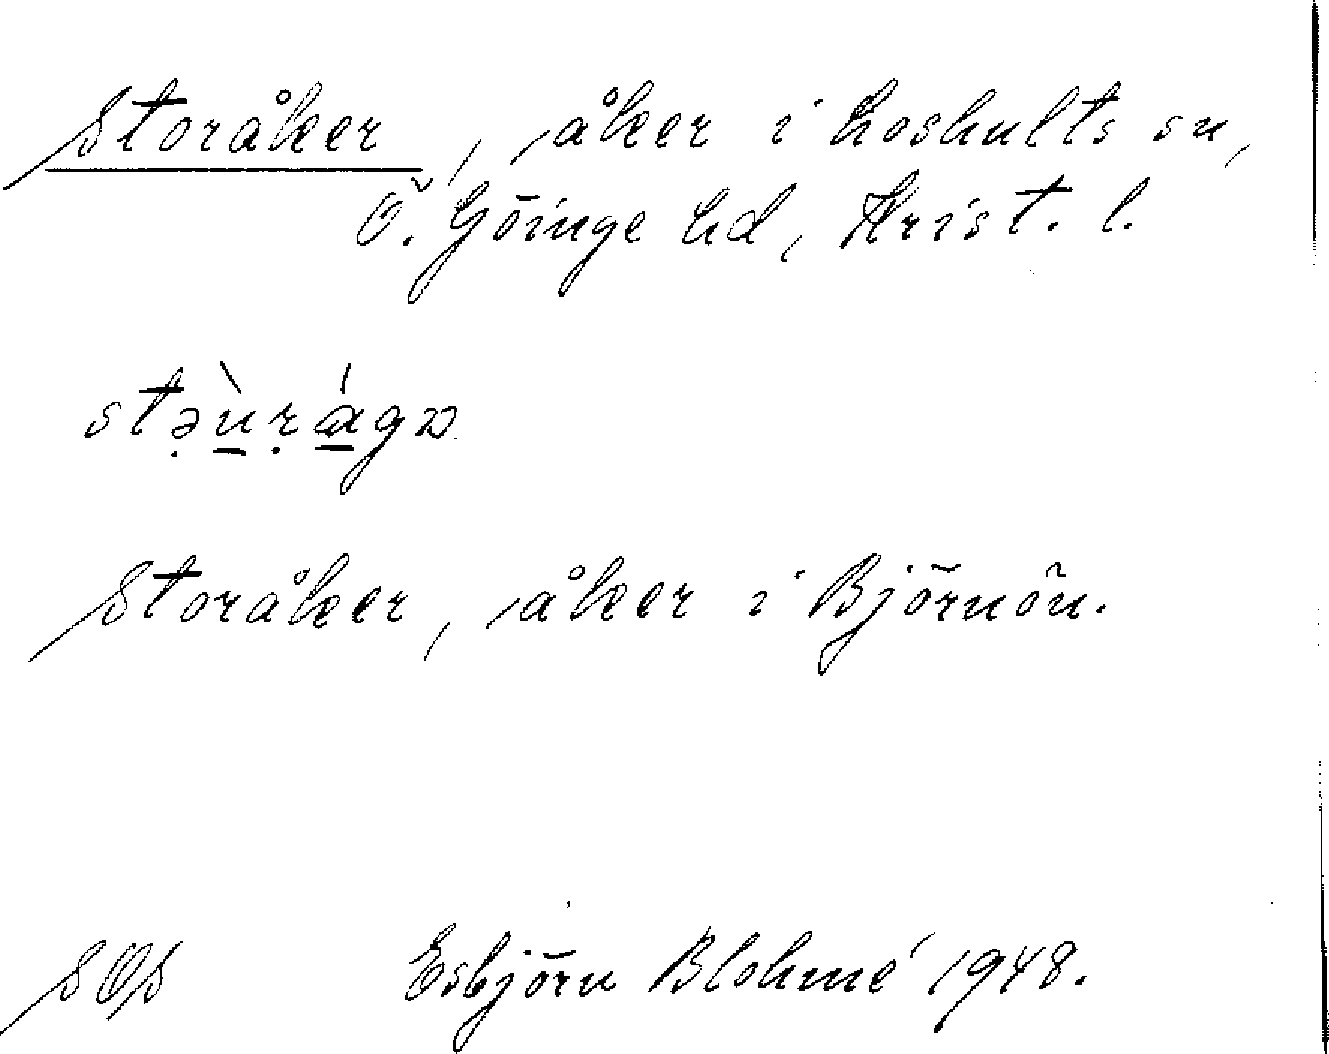 Storåker, åker i Loshults sn,
Ö. Göinge hd, Krist. l.
stə̣ùṛágɒ
Storåker, åker i Björnön.
SOS Esbjörn Blohmé 1948.